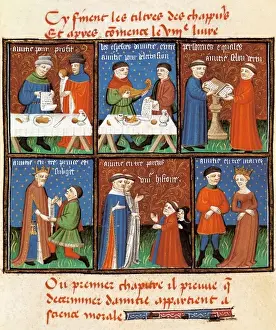 Cy finent les tiltres des chappitres
Et apres comence le viiie livre
amitie pour profit
les especes damitie entre
amitie pour delectation
personnes equales
amitie selon vertu
amitie entre prince et
subget
amitie entre
qui hisforie
amitie entre mariez
Ou premier chapitre il preuve q̄
determiner damitie appartient a
science morale